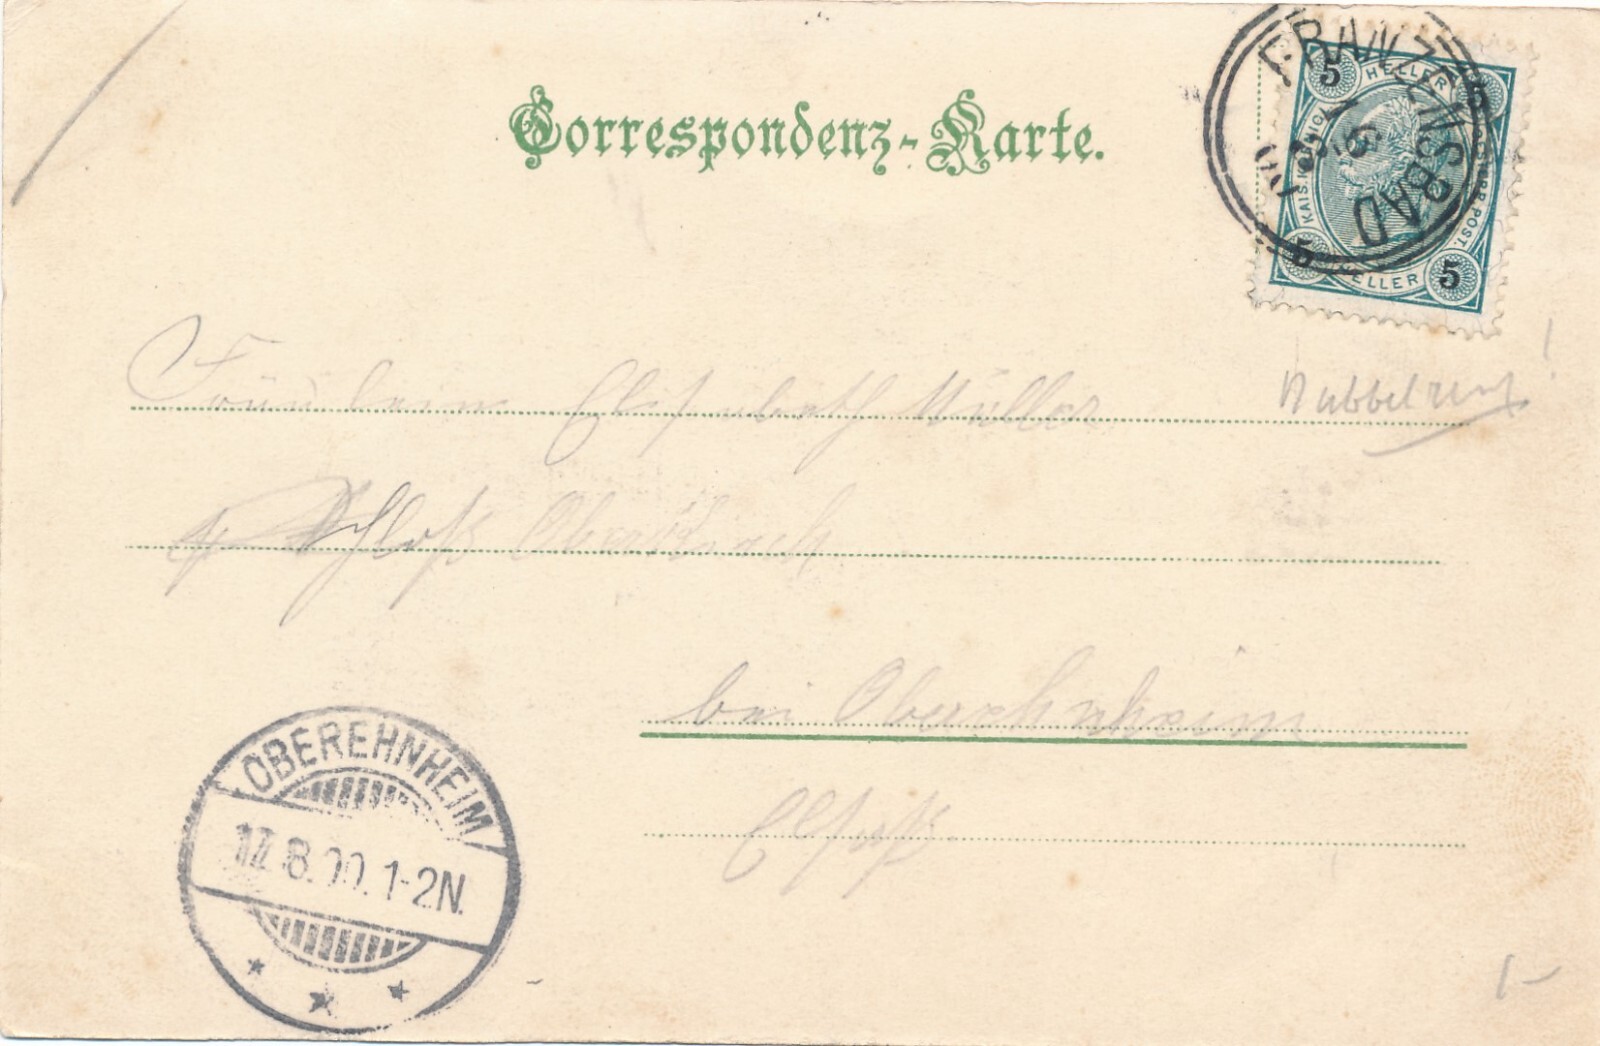 Correspondenz-Karte.
FRANZENSBAD
5 HELLER 5
KAIS. KÖNIGL. POST.
5 HELLER 5
Fräulein Elisabeth Müller
Schloß
bei Oberehnheim
Elsaß
OBEREHNHEIM
17.8.00.1-2N.
1-